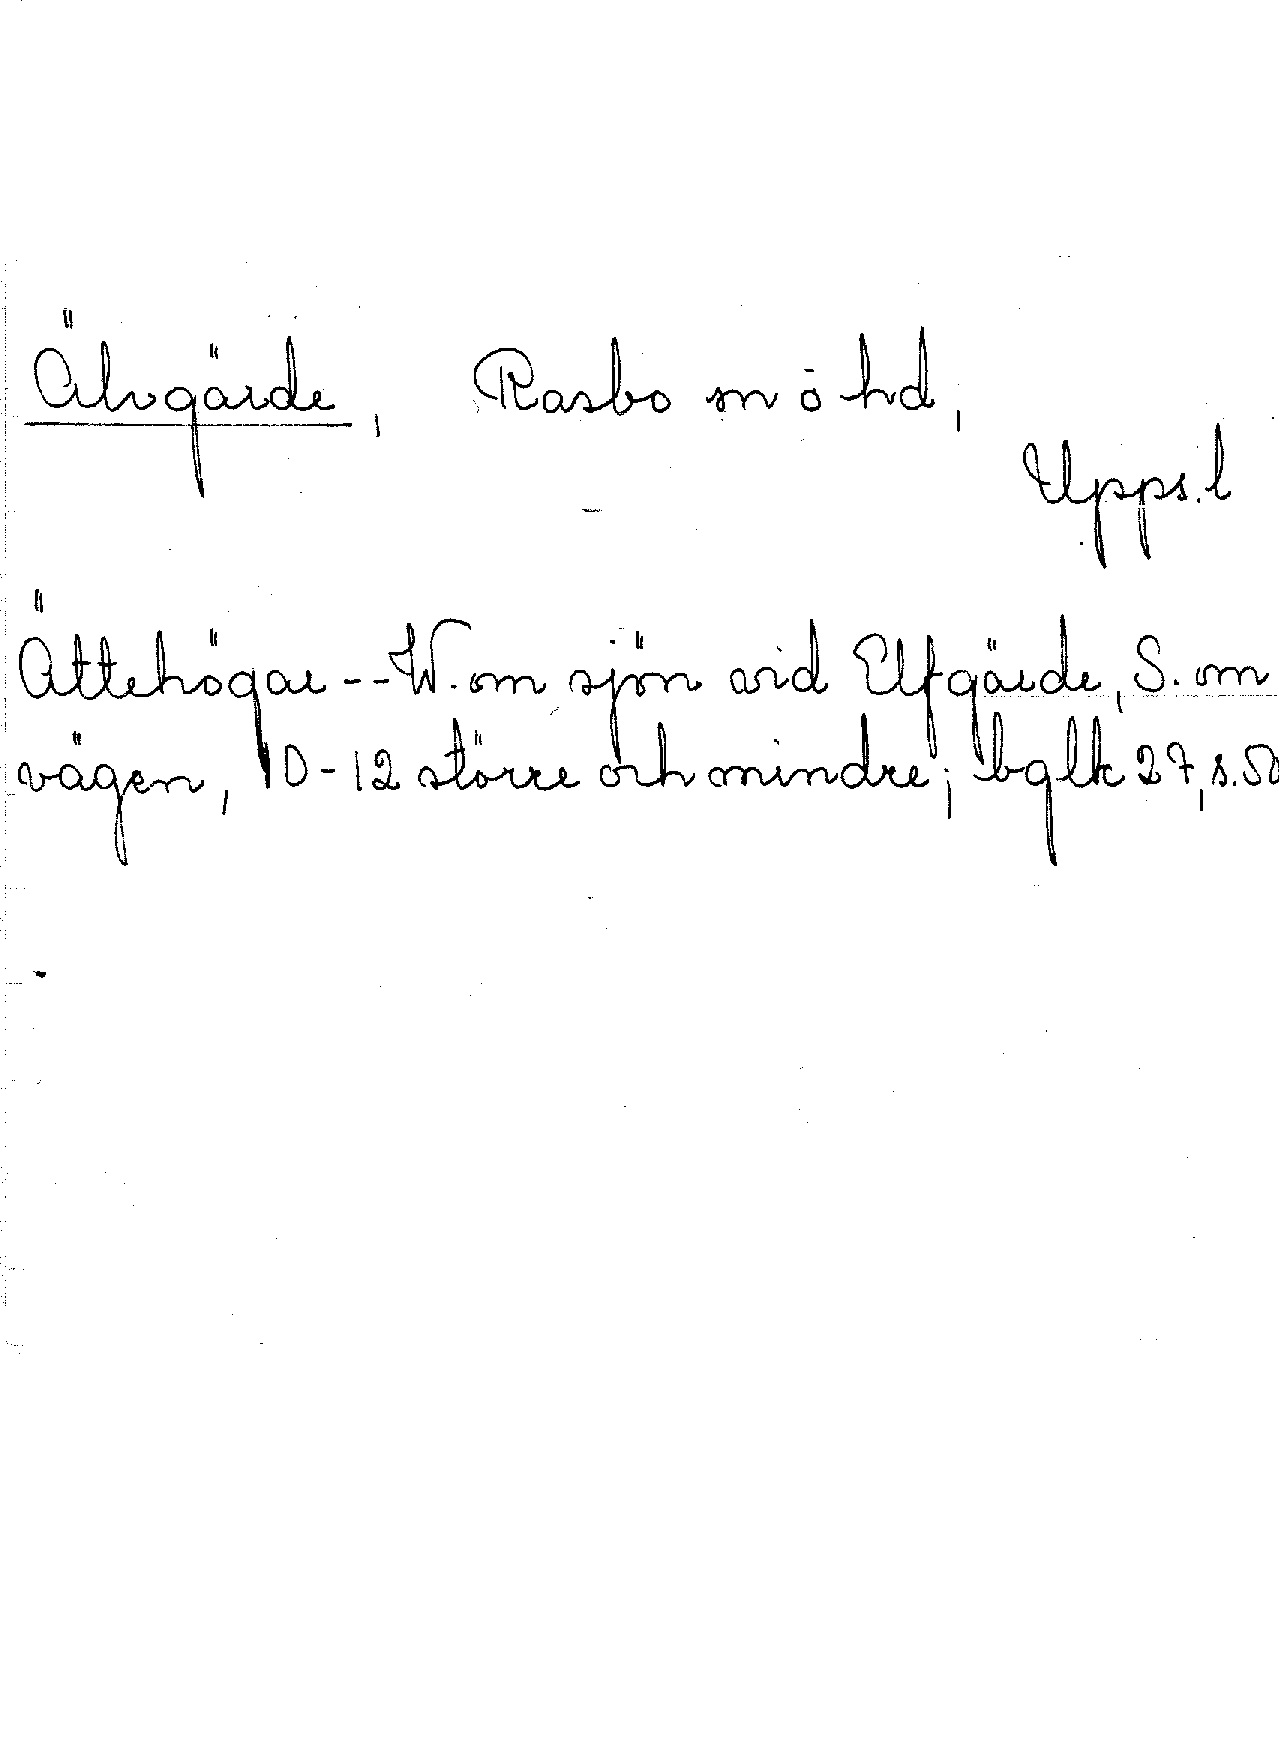 Älvgärde, Rasbo sn o hd,
Upps.l
Ättehögar -- W. om sjön vid Elfgärde, S. om
vägen, 10-12 större och mindre; bglk 27, s. 50